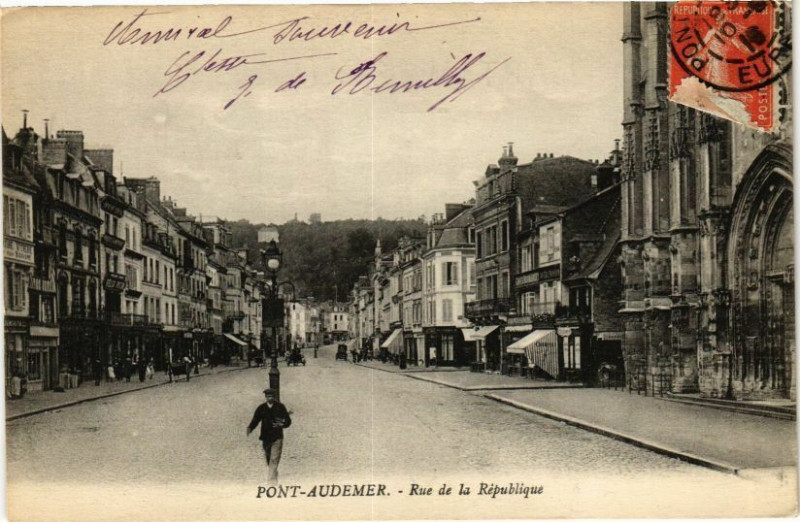 Amical souvenir
Ctesse G. de Remilly
RÉPUBLIQUE FRANÇAISE
PONT
10
EURE
POSTES
PONT-AUDEMER. - Rue de la République